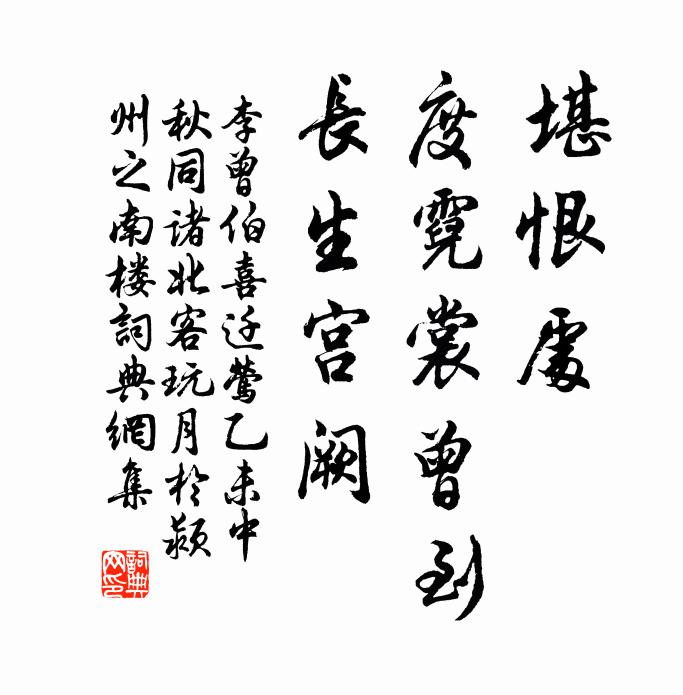 堪恨處
度霓裳曾到
長生宫阙
李曾伯喜迁莺乙未中
秋同诸北客玩月於颍
州之南楼詞典網集
詞典
网印